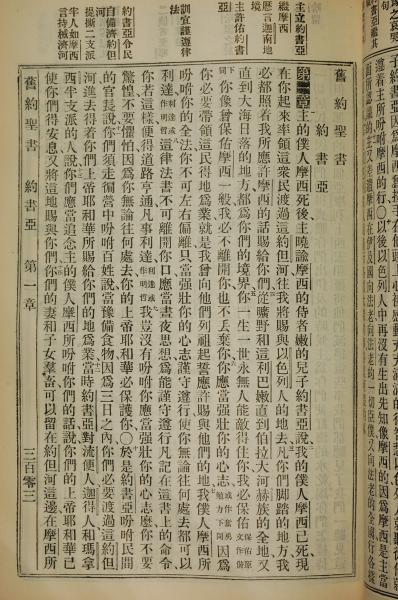 舊約聖書
約書亞
主立約書亞
繼摩西
歷言迦南地
境
主許佑約書
亞
訓宣謹遵律
約書亞令民
自備濟約但
提撕二支派
半人如摩西
言持械濟河
主的僕人摩西死後主曉諭摩西的侍者嫩的兒子約書亞說我的僕人摩西已死現
在你起來率領這衆民渡過這約但河往我將賜與以色列人的地去凡你們脚踏的地方我
必都照着我所應許摩西的話賜給你們從曠野和這利巴嫩直到伯拉大河赫族的全地又
直到大海日落的地方都爲你們的境界你一生一世永無人能敵得住你我必保佑
你像曾保佑摩西一般我必不離開你也不丟棄你你應當强壯你的心志因爲
你必要帶領這民得地爲業就是我曾向他們列祖起誓應許賜與他們的地我僕人摩西所
吩咐你的全法你不可左右偏離只當强壯你的心志謹守遵行使你無論往何處去都可以
利達這律法書不可離開你口應當晝夜思想爲能謹守遵行凡記在這書上的命令
你若這樣便得道路亨通凡事利達我豈沒有吩咐你應當强壯你的心志麼你不要
驚惶不要懼怕因爲你無論往何處去你的上帝耶和華必保護你○於是約書亞吩咐民間
的官長說你們須走徧營中吩咐百姓說當豫備食物因爲三日之內你們必要渡過這約但
河進去得着你們上帝耶和華所賜給你們的地爲業當時約書亞對流便人迦得人和瑪拿
西半支派的人說你們應當追念主的僕人摩西所吩咐你們的話說你們的上帝耶和華已
使你們得安息又將這地賜與你們你們的妻和子女羣畜可以留在約但河這邊在摩西所
舊約聖書 約書亞 第一章 三百零三